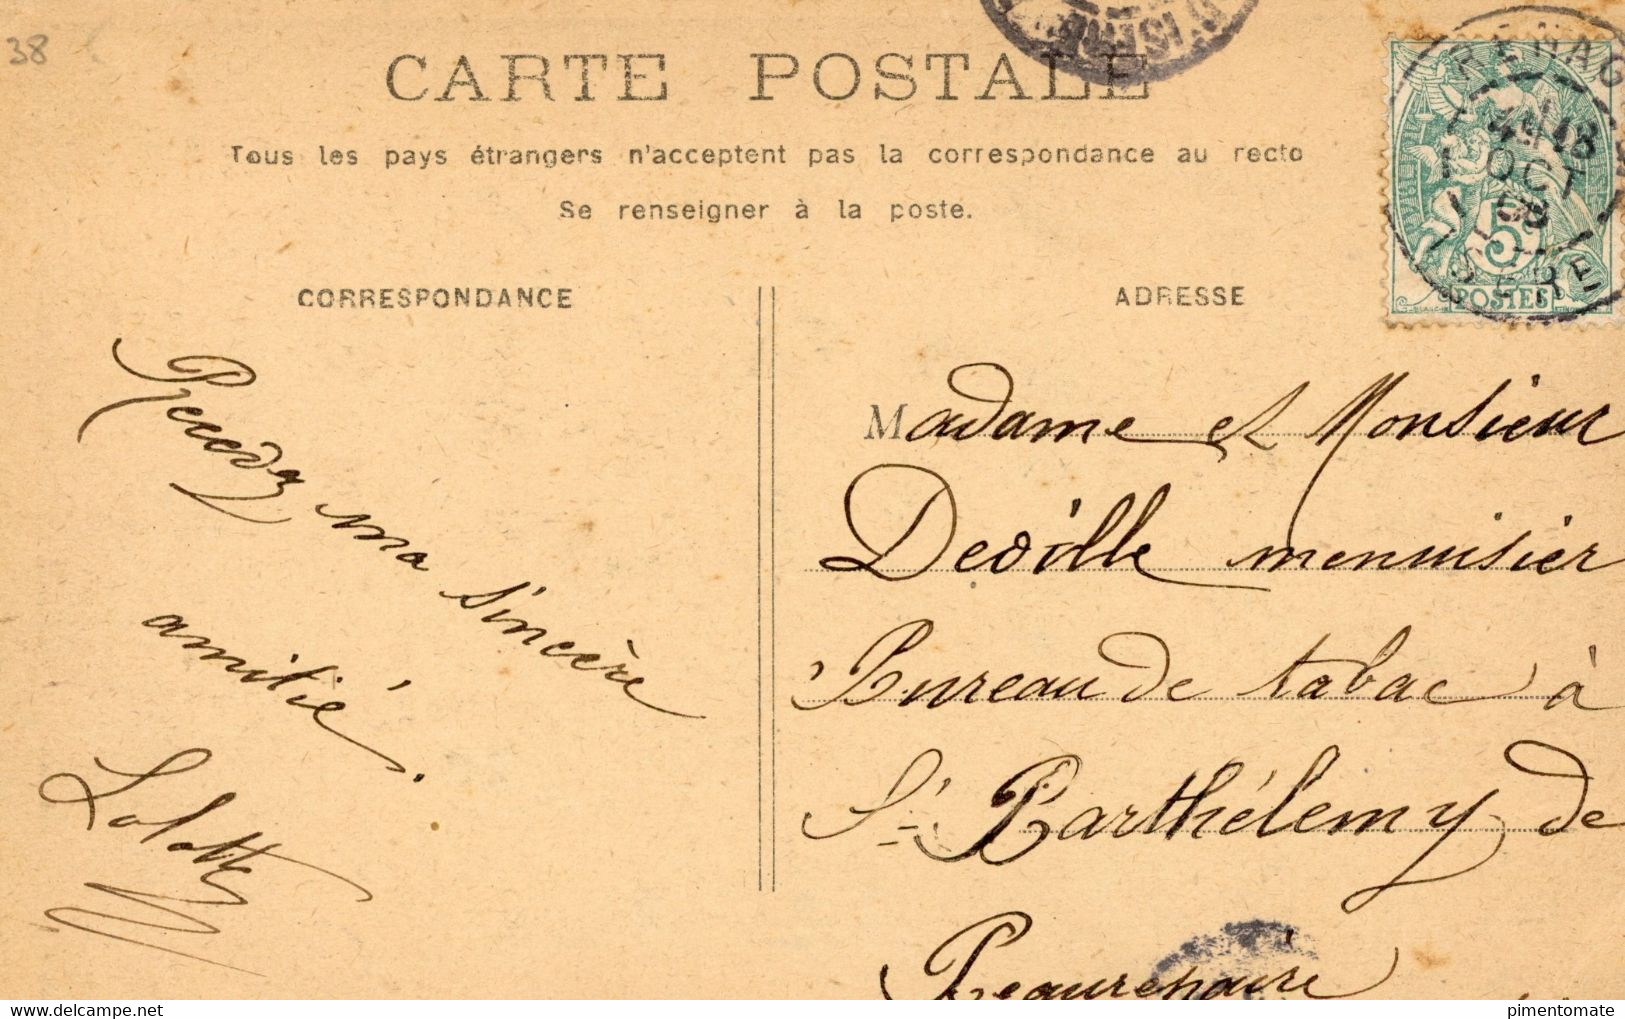 38
CARTE POSTALE
Tous les pays étrangers n'acceptent pas la correspondance au recto
Se renseigner à la poste.
CORRESPONDANCE
ADRESSE
Recevez ma sincère
amitié.
Lolotte
Madame et Monsieur
Deville menuisier
Bureau de tabac à
St Barthélemy de
Beaurepaire
RENAG
OCT
08
ISERE
5c
POSTES
D'ISERE
delcampe.net
pimentomate